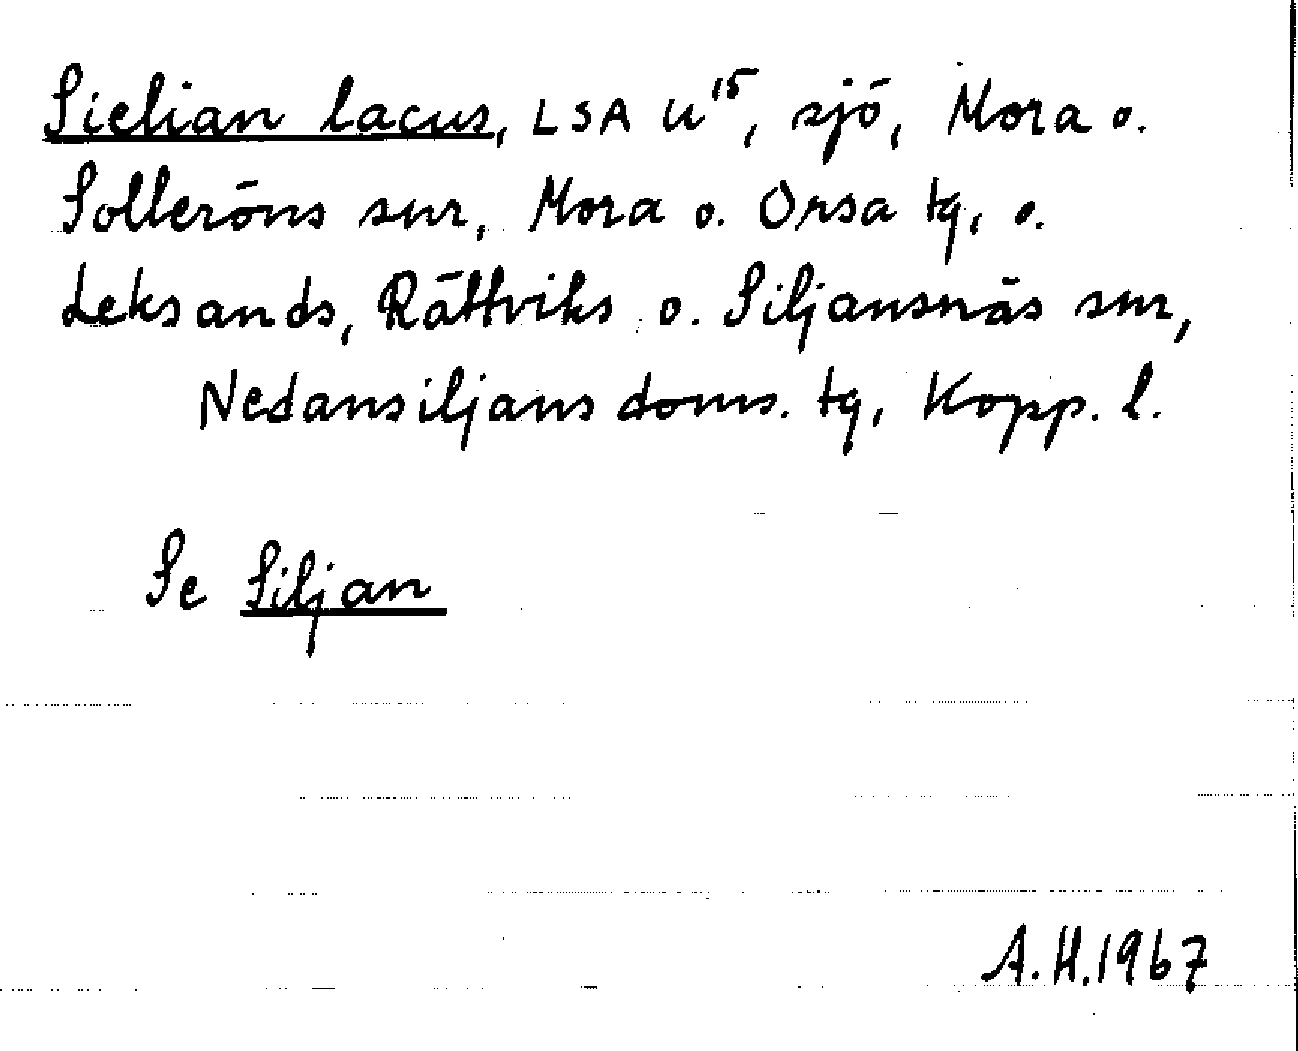 Sielian lacus, LSA U¹⁵, sjö, Mora o.
Solleröns snr, Mora o. Orsa tg, o.
Leksands, Rättviks o. Siljansnäs snr,
Nedansiljans doms. tg, Kopp. l.
Se Siljan
A.H.1967